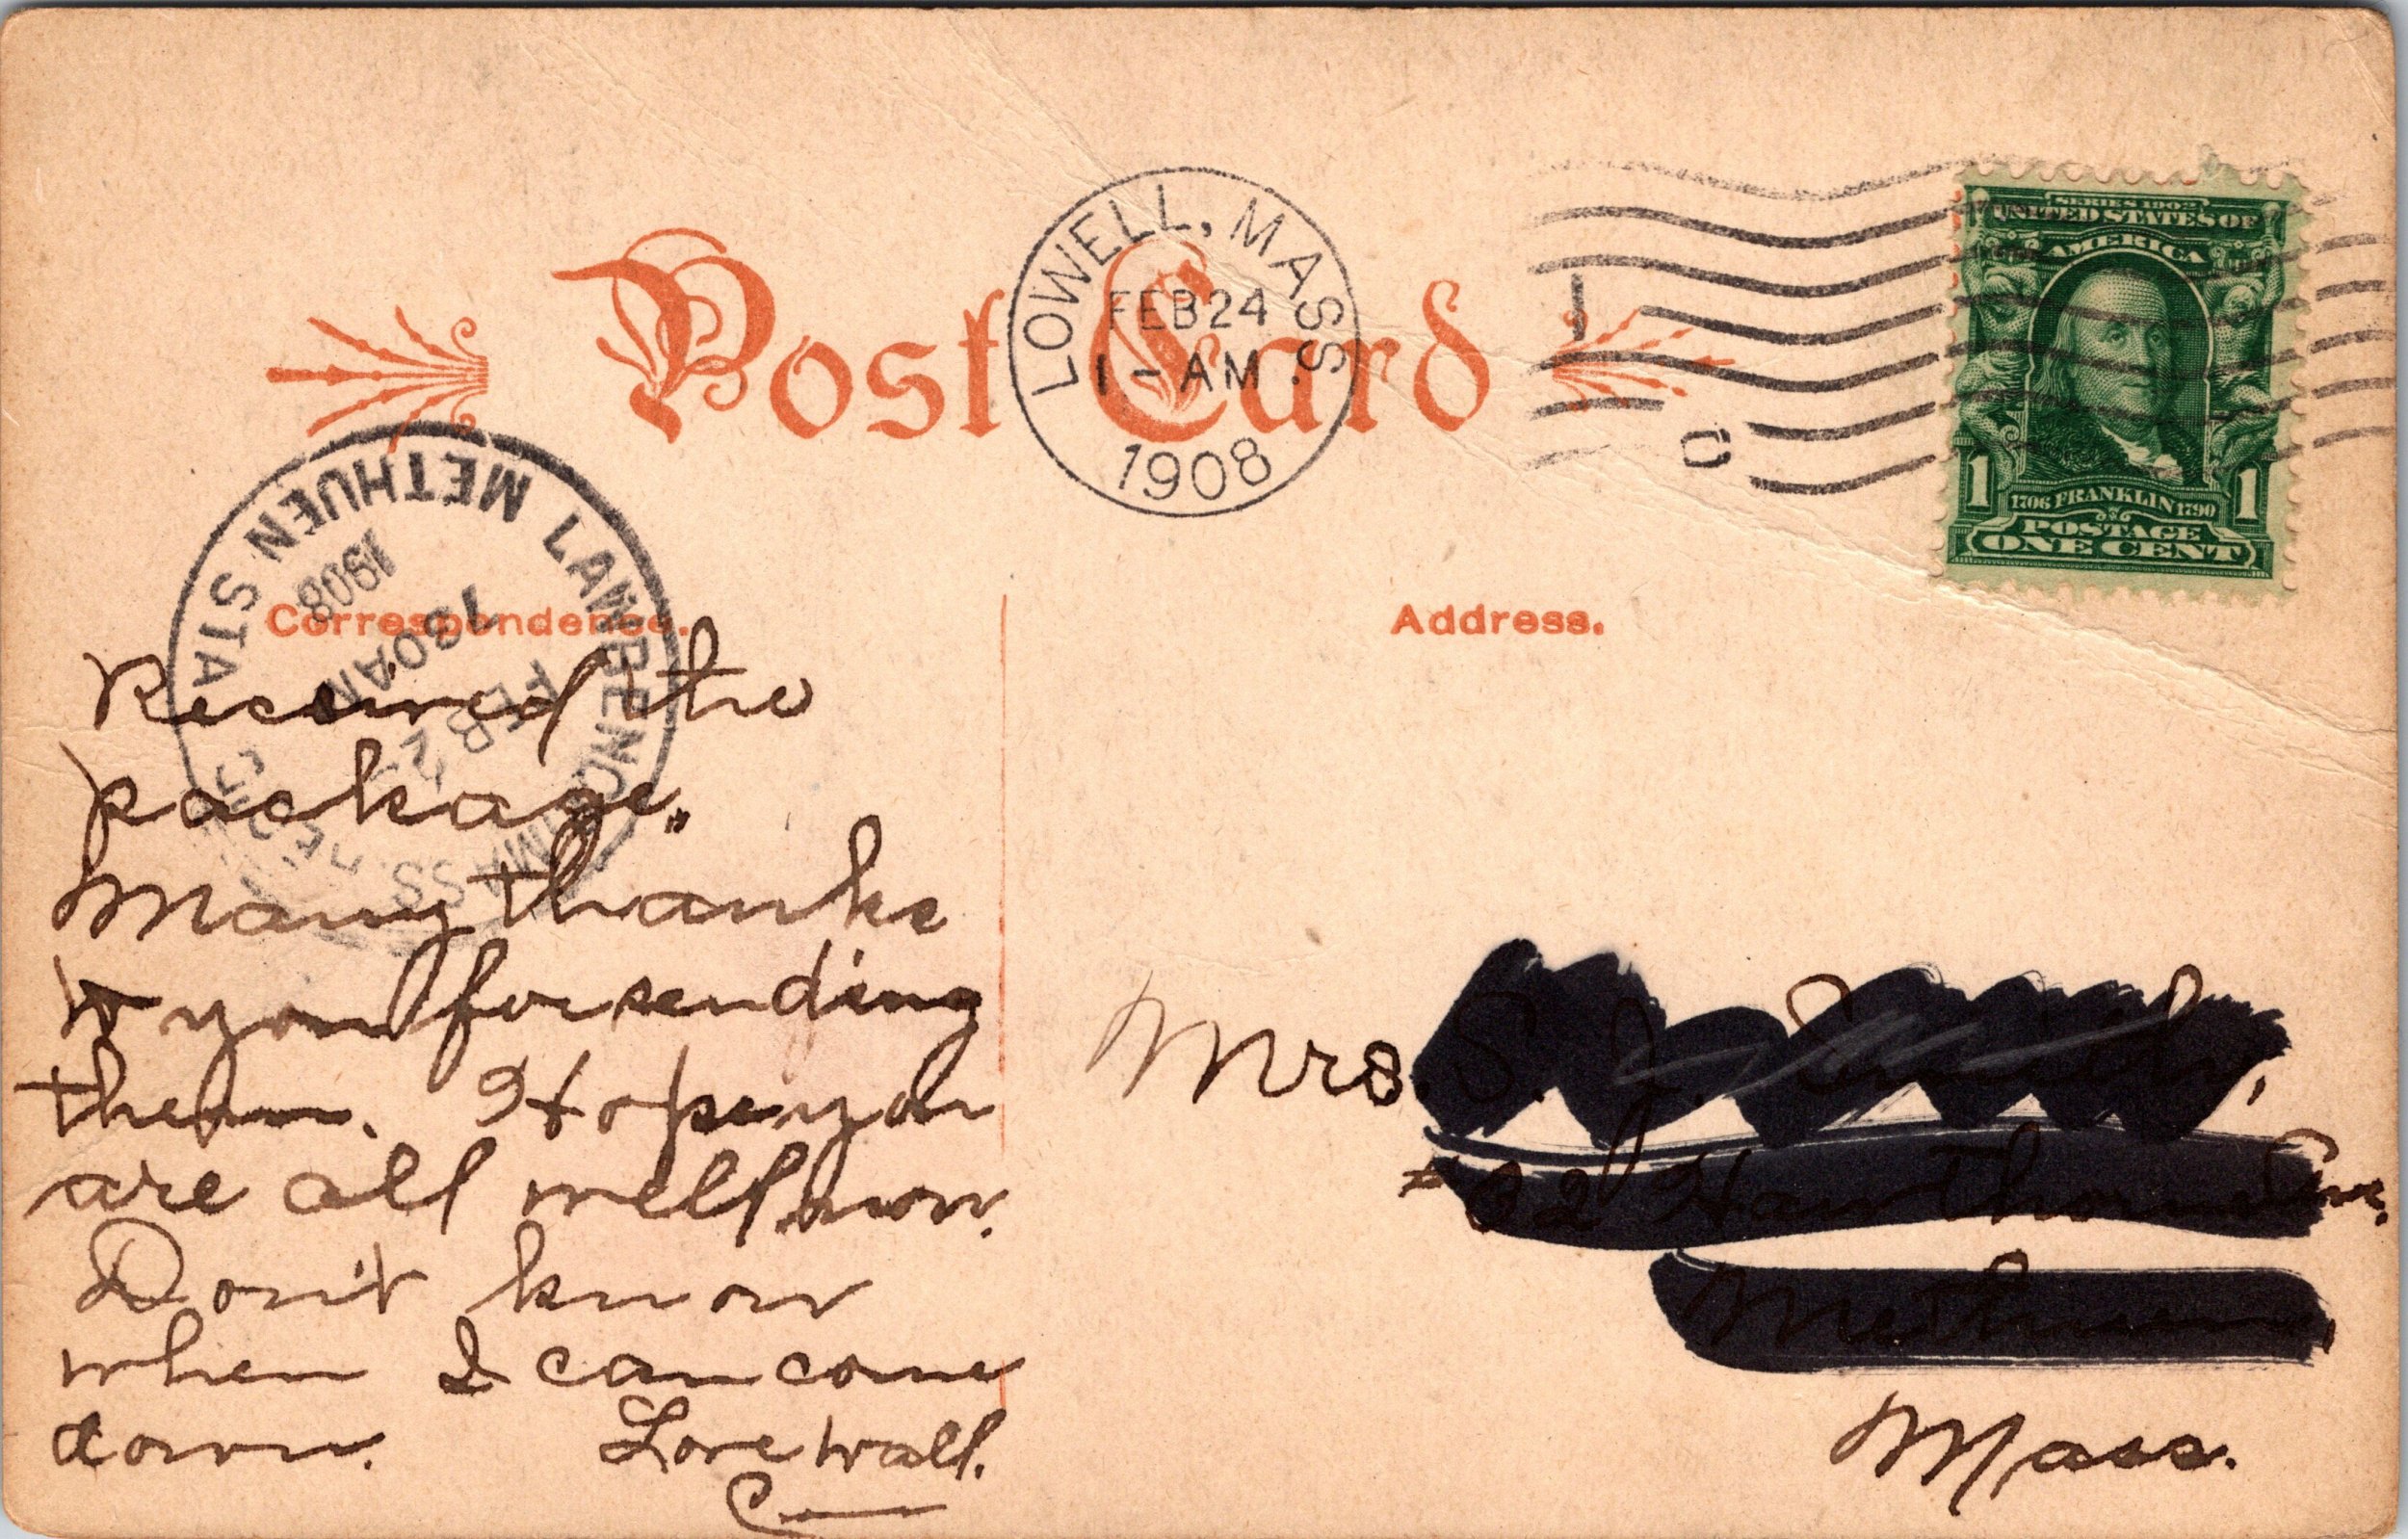 Post Card
LOWELL, MASS.
FEB 24
1 - AM
1908
SERIES 1902
UNITED STATES OF
AMERICA
1 1
1706 FRANKLIN 1790
POSTAGE
ONE CENT
METHUEN STA.
LAWRENCE MASS. REC'D
1908
730AM
FEB 2
Correspondence.
Address.
Received the
package.
Many thanks
to you for sending
them. Hope you
are all well now.
Don't know
when I can come
down. Love to all.
Mrs. S. J. Smith,
Hawthorn Ave.
Methuen,
Mass.